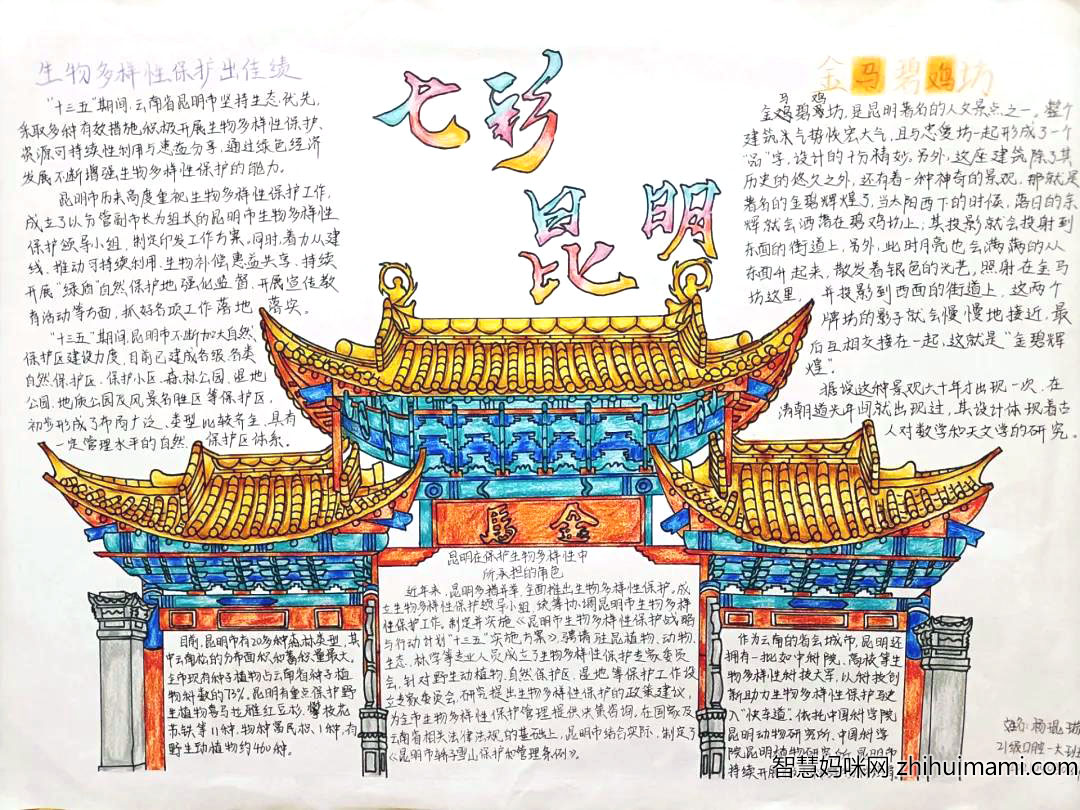 七彩
昆明
生物多样性保护出佳绩
"十三五"期间,云南省昆明市坚持生态优先,
采取多种有效措施,积极开展生物多样性保护、
资源可持续性利用与惠益分享,通过绿色经济
发展不断增强生物多样性保护的能力。
昆明市历来高度重视生物多样性保护工作,
成立了以分管副市长为组长的昆明市生物多样性
保护领导小组,制定印发工作方案。同时,着力从建
线、推动可持续利用、生物补偿惠益共享、持续
开展"绿盾"自然保护地强化监督、开展宣传教
育活动等方面,抓好各项工作落地落实。
"十三五"期间,昆明市不断加大自然
保护区建设力度,目前已建成各级各类
自然保护区、保护小区、森林公园、湿地
公园、地质公园及风景名胜区等保护区,
初步形成了布局广泛、类型比较齐全、具有
一定管理水平的自然保护区体系。
金马碧鸡坊
马 鸡
金碧坊,是昆明著名的人文景点之一。整个
建筑气势恢宏大气,且与忠爱坊一起形成了一个
"品"字,设计的十分精妙。另外,这座建筑除了其
历史的悠久之外,还有着一种神奇的景观,那就是
著名的金碧辉煌了,当太阳西下的时候,落日的余
辉就会洒落在碧鸡坊上,其投影就会投射到
东面的街道上,另外,此时月亮也会满满的从
东面升起来,散发着银色的光芒,照射在金马
坊这里,并投影到西面的街道上,这两个
牌坊的影子就会慢慢地接近,最
后互相交接在一起,这就是"金碧辉
煌"。
据说这种景观六十年才出现一次,在
清朝道光年间就出现过,其设计体现着古
人对数学和天文学的研究。
馬 金
昆明在保护生物多样性中
所承担的角色
近年来,昆明多措并举,全面推出生物多样性保护,成
立生物多样性保护领导小组,统筹协调昆明市生物多样
性保护工作。制定并实施《昆明市生物多样性保护战略
与行动计划"十三五"实施方案》,聘请驻昆植物、动物、
生态、林学等专业人员成立了生物多样性保护专家委员
会,针对野生动植物、自然保护区、湿地等保护工作设
立专家委员会,研究提出生物多样性保护的政策建议,
为全市生物多样性保护管理提供决策咨询,在国家及
云南省相关法律法规的基础上,昆明市结合实际,制定了
《昆明市轿子雪山保护和管理条例》。
目前,昆明市有20多种森林类型,其
中云南松的分布面积和蓄积量最大。
全市现有种子植物占云南省种子植
物种数的73%,昆明有重点保护野
生植物喜马拉雅红豆杉、攀枝花
苏铁等11种,物种富民枳1种,有
野生动植物约460种。
作为云南的省会城市,昆明还
拥有一批如中科院、高校等生
物多样性科技大军,以科技创
新助力生物多样性保护驶
入"快车道"。依托中国科学院
昆明动物研究所、中国科学
院昆明植物研究所,昆明市
持续开展
姓名:杨琨
21级口腔一大班
智慧妈咪网 zhihuimami.com